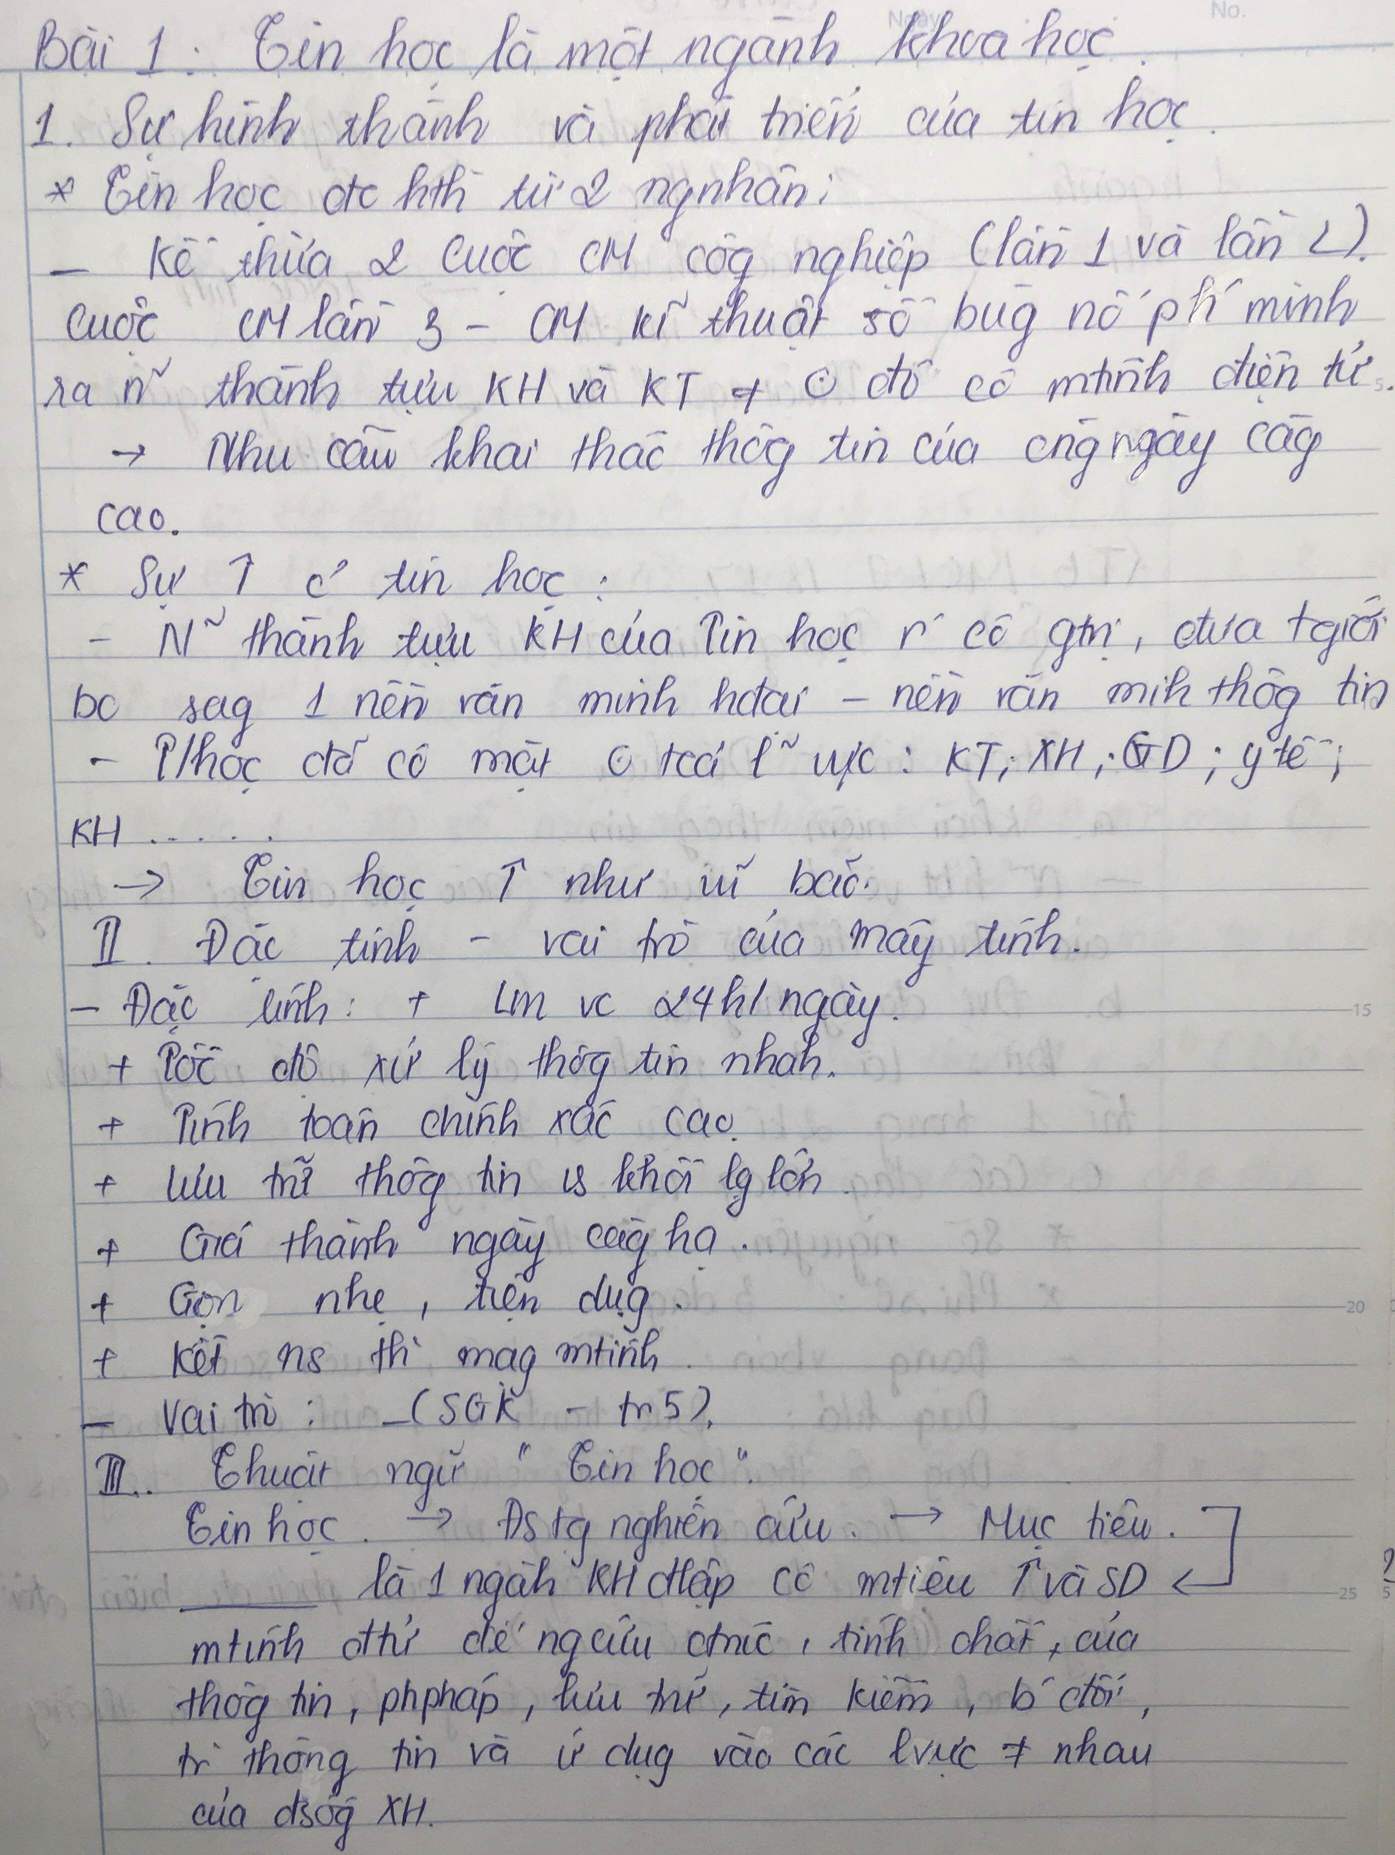 Bài 1: Tin học là một ngành khoa học.
1. Sự hình thành và phát triển của tin học.
* Tin học đc hth từ 2 ngnhân:
- Kế thừa 2 cuộc CM côg nghiệp (lần 1 và lần 2).
Cuộc CM lần 3 - CM kĩ thuật số bùg nổ phí minh
ra n~ thành tựu KH và KT + ⊙ đó có mtính điện tử.
→ Nhu cầu khai thác thôg tin của cng ngày càg
cao.
* Sự ↑ c' tin học:
- N~ thành tựu KH của Tin học r' có gtrị, đưa tgiới
bc sag 1 nền văn minh hđại - nền văn mih thôg tin
- T/học đã có mặt ⊙ tcả l~ vực: KT; XH; GD; y tế;
KH .....
→ Tin học ↑ như vũ bão.
II. Đặc tính - vai trò của máy tính.
- Đặc tính: + Lm vc 24h/ngày.
+ Tốc độ xử lý thôg tin nhah.
+ Tính toán chính xác cao.
+ Lưu trữ thôg tin vs khối lg lớn.
+ Giá thành ngày càg hạ.
+ Gọn nhẹ, tiện dụg.
+ Kết ns th` mạg mtính.
- Vai trò: _(SGK - tr5).
III. Thuật ngữ "Tin học".
Tin học. → Đs tg nghiên cứu. → Mục tiêu.
là 1 ngàh KH đlập có mtiêu ↑ và SD ←
mtính đtử để ngcứu ctrúc, tính chất, của
thôg tin, phpháp, lưu trữ, tìm kiếm, b' đổi,
tr` thông tin và ứ dụg vào các lvực ≠ nhau
của đsốg XH.